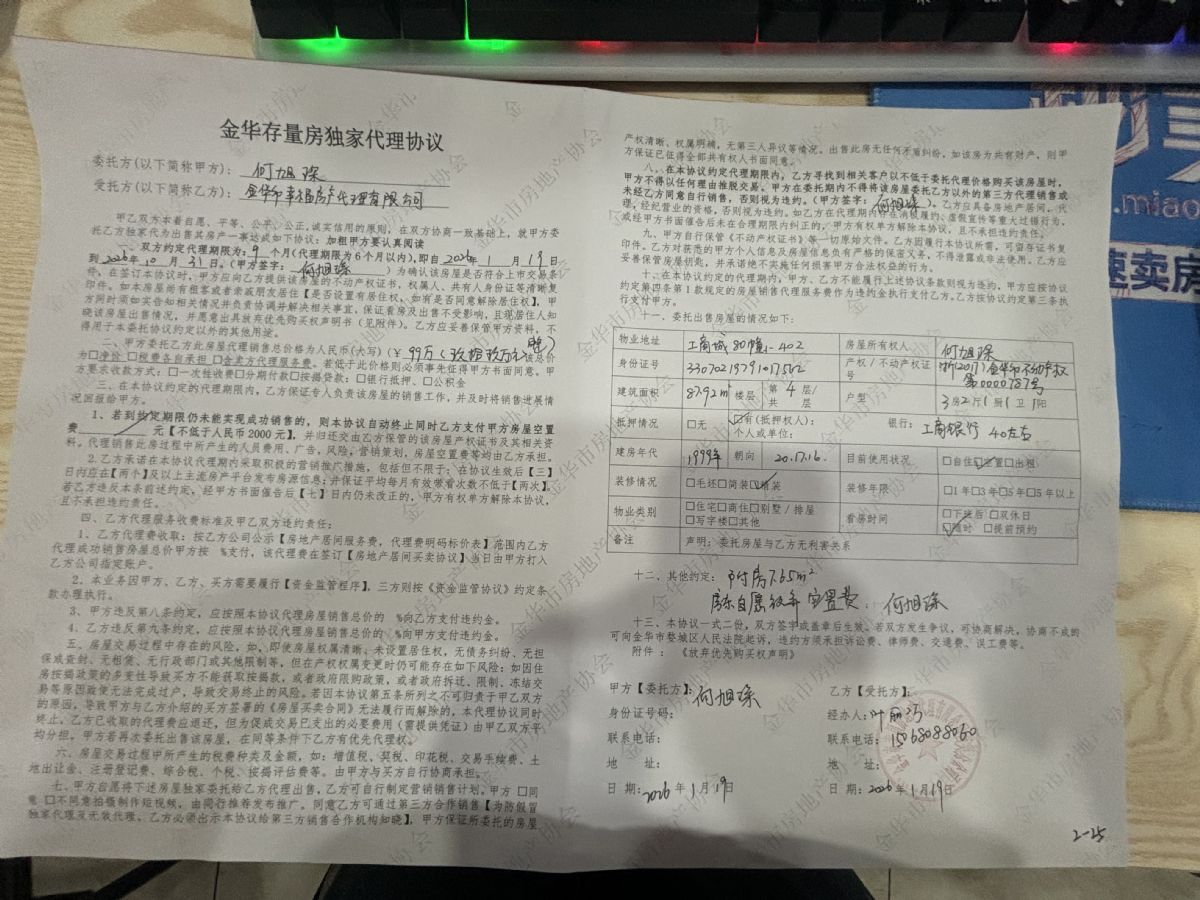 金华存量房独家代理协议
委托方(以下简称甲方)： 何旭琛
受托方(以下简称乙方)： 金华市幸福房产代理有限公司
甲乙双方本着自愿、平等、公平、公正、诚实信用的原则，在双方协商一致基础上，就甲方委
托乙方独家代为出售其房产一事达成如下协议：加粗甲方要认真阅读
一、双方约定代理期限为：9 个月(代理期限为6个月以内)，即自 2026年 1 月 19 日
到 2026年 10 月 31 日。(甲方签字： 何旭琛 ) 为确认该房屋是否符合上市交易条
件，在签订本协议时，甲方应向乙方提供该房屋的不动产权证书，权属人、共有人身份证等清晰复
印件。如本房屋尚有租客或者亲戚朋友居住【是否设置有居住权，如有是否同意解除居住权】，甲
方同时须如实告知相关情况并负责协调并解决相关事宜，保证看房及出售不受影响，且现居住人知
晓该房屋出售情况，并愿意出具放弃优先购买权声明书（见附件）。乙方应妥善保管甲方资料，不
得用于本委托协议约定以外的其他用途。
二、甲方委托乙方此房屋代理销售总价格为人民币(大写)（￥ 99万 (玖拾玖万元 ) 该总价
为□净价 □税费各自承担 □含卖方代理服务费。若低于此价格则必须事先征得甲方书面同意。甲
方要求收款方式：□一次性收费□分期付款□按揭贷款：□银行抵押、□公积金
三、在本协议约定的代理期限内，乙方保证专人负责该房屋的销售工作，并及时将销售进展情
况回报给甲方。
1、若到约定期限仍未能实现成功销售的，则本协议自动终止同时乙方支付甲方房屋空置
费 元【不低于人民币2000元】，并归还交由乙方保管的该房屋产权证书及其相关资
料。代理销售此房过程中所产生的人员费用、广告，风险，营销策划，房屋空置费等均由乙方承担。
2、乙方承诺在本协议代理期内采取积极的营销推广措施，包括但不限于：在协议生效后【三】
日内应在【两个】及以上主流房产平台发布房源信息；并保证平均每月有效带看次数不低于【两次】，
若乙方违反本条前述约定，经甲方书面催告后【七】日内仍未改正的，甲方有权单方解除本协议，
且不承担违约责任。
四、乙方代理服务收费标准及甲乙双方违约责任：
1、乙方代理费收取：按乙方公司公示【房地产居间服务费，代理费明码标价表】范围内乙方
代理成功销售房屋总价甲方按 %支付，该代理费在签订【房地产居间买卖协议】当日由甲方打入
乙方公司指定账户。
2、本业务因甲方、乙方、买方需要履行【资金监管程序】，三方则按《资金监管协议》约定条
款办理执行。
3、甲方违反第八条约定，应按照本协议代理房屋销售总价的 %向乙方支付违约金。
4、乙方违反第九条约定，应按照本协议代理房屋销售总价的 %向甲方支付违约金。
五、房屋交易过程中存在的风险，如，即使房屋权属清晰、未设置居住权，无债务纠纷、无担
保或查封、无租赁、无行政部门或其他限制等，但在产权权属变更时仍可能存在如下风险：如因住
房按揭政策的多变性导致买方不能获取按揭款，或者政府限购政策，或者政府拆迁、限制、冻结交
易等原因致使无法完成过户，导致交易终止的风险。若因本协议第五条所列之不可归责于甲乙双方
的原因，导致甲方与乙方介绍的买方签署的《房屋买卖合同》无法履行而解除的，本代理协议同时
终止，乙方已收取的代理费应退还，但为促成交易已支出的必要费用（需提供凭证）由甲乙双方平
均分担。甲方若再次委托出售该房屋，在同等条件下乙方有优先代理权。
六、房屋交易过程中所产生的税费种类及金额，如：增值税、契税、印花税、交易手续费、土
地出让金、注册登记费、综合税、个税、按揭评估费等。由甲方与买方自行协商承担。
七、甲方自愿将下述房屋独家委托给乙方代理出售，乙方可自行制定营销计划，甲方 □同
意 □不同意拍摄制作短视频，由同行推荐发布推广。同意乙方可通过第三方合作销售【为防假冒
独家代理及无效代理，乙方必须出示本协议给第三方销售合作机构知晓】，甲方保证所委托的房屋
产权清晰、权属明确，无第三人异议等情况。出售此房无任何矛盾纠纷，如该房为共有财产，则甲
方保证已征得全部共有权人书面同意。
八、在本协议约定代理期限内，乙方寻找到相关客户以不低于委托代理价格购买该房屋时，
甲方不得以任何理由推脱交易。甲方在委托期内不得将该房屋委托乙方以外的第三方代理销售或
未经乙方同意自行销售，否则视为违约。(甲方签字： 何旭琛 )。乙方应具备房地产居间、代
理，经纪营业的资格，否则视为违约。如乙方在代理期内存在消极履约、虚假宣传等重大过错行为，
或经甲方书面催告后未在合理期限内纠正的，甲方有权单方解除本协议，且不承担违约责任。
九、甲方自行保管《不动产权证书》等一切原始文件。乙方因履行本协议所需，可留存证书复
印件。乙方对获悉的甲方个人信息及房屋信息负有严格的保密义务，不得泄露或非法使用。乙方应
妥善保管房屋钥匙，并承诺绝不实施任何损害甲方合法权益的行为。
十、在本协议约定的代理期内，甲方、乙方不能履行上述协议条款则视为违约，甲方应按协议
约定第四条第1款规定的房屋销售代理服务费作为违约金执行支付乙方。乙方按协议约定第三条执
行支付甲方。
十一、委托出售房屋的情况如下：
物业地址 工商城80幢1-402 房屋所有权人 何旭琛
身份证号 330702197910175662 产权/不动产权证号 浙(2017)金华市不动产权第0000787号
建筑面积 87.92m² 楼层 第 4 层/共 层 户型 3房2厅1厨1卫1阳
抵押情况 □无 □有(抵押权人)： 个人或单位： 银行： 工商银行 40左右
建房年代 1999年 朝向 20.17.16. 目前使用状况 □自住□空置□出租
装修情况 □毛坯□简装□精装 装修年限 □1年□3年□5年□5年以上
物业类别 □住宅□商住□别墅/排屋 □写字楼□其他 看房时间 □下班后 □双休日 □随时 □提前预约
备注 声明：委托房屋与乙方无利害关系
十二、其他约定： 附房7.65m²
房东自愿放弃空置费. 何旭琛
十三、本协议一式二份，双方签字或盖章后生效。若双方发生争议，可协商解决，协商不成的
可向金华市婺城区人民法院起诉，违约方须承担诉讼费、律师费、交通费、误工费等。
附件 ： 《放弃优先购买权声明》
甲方【委托方】： 何旭琛 乙方【受托方】：
身份证号码： 经办人：叶丽巧
联系电话： 联系电话：15068088060
地 址： 地 址：
日 期：2026年 1月 19日 日 期：2026年 1月 19日
2-25
.miao
速卖房